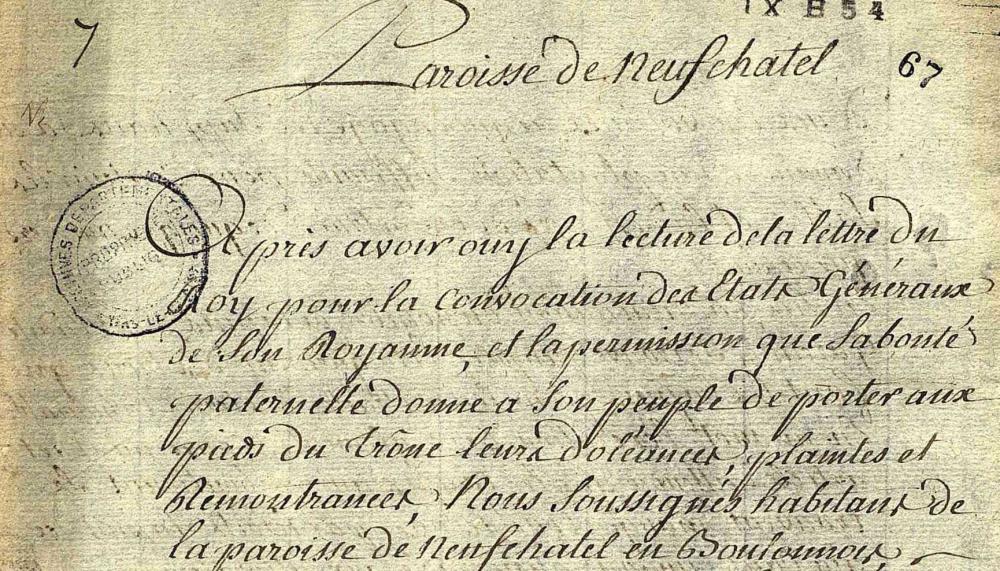 IX B 54
7
Paroisse de Neufchatel
67
Après avoir ouy la lecture de la lettre du
Roy pour la convocation des Etats Généraux
de Son Royaume, et la permission que Sa bonté
paternelle donne a Son peuple de porter aux
pieds du Trône leurs doléances, plaintes et
Remontrances, Nous Soussignés habitans de
la paroisse de Neufchatel en Boulonnois,